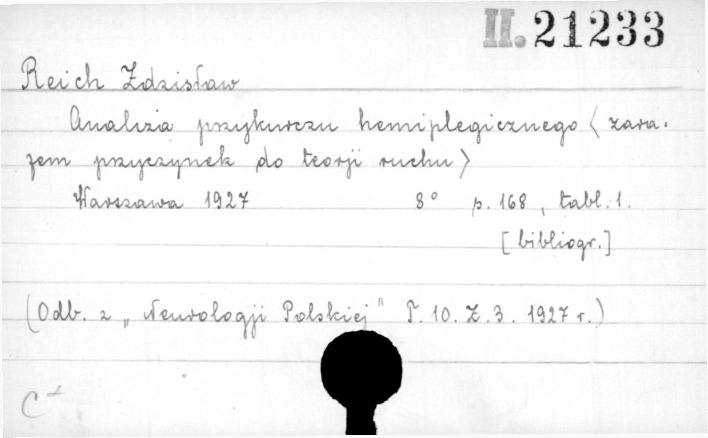 II. 21233
Reich Zdzisław
Analiza przykurczu hemiplegicznego (zara-
zem przyczynek do teorji ruchu)
Warszawa 1927 8° p. 168, tabl. 1.
[bibliogr.]
(Odb. z „Neurologji Polskiej" T. 10. Z. 3. 1927 r.)